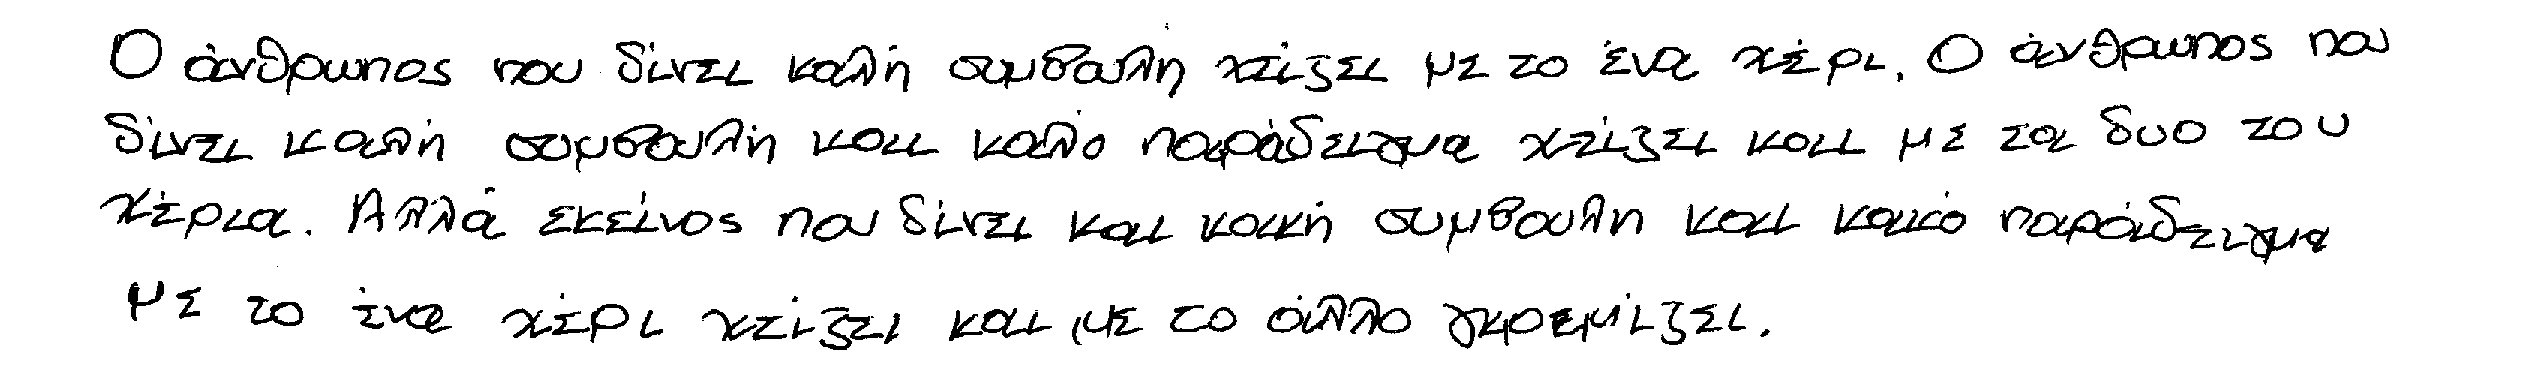 Ο άνθρωπος που δίνει καλή συμβουλή χτίζει με το ένα χέρι. Ο άνθρωπος που
δίνει καλή συμβουλή και καλό παράδειγμα χτίζει και με τα δυο του
χέρια. Αλλά εκείνος που δίνει και κακή συμβουλη και κακό παράδειγμα
με το ένα χέρι χτίζει και με το άλλο γκρεμίζει.